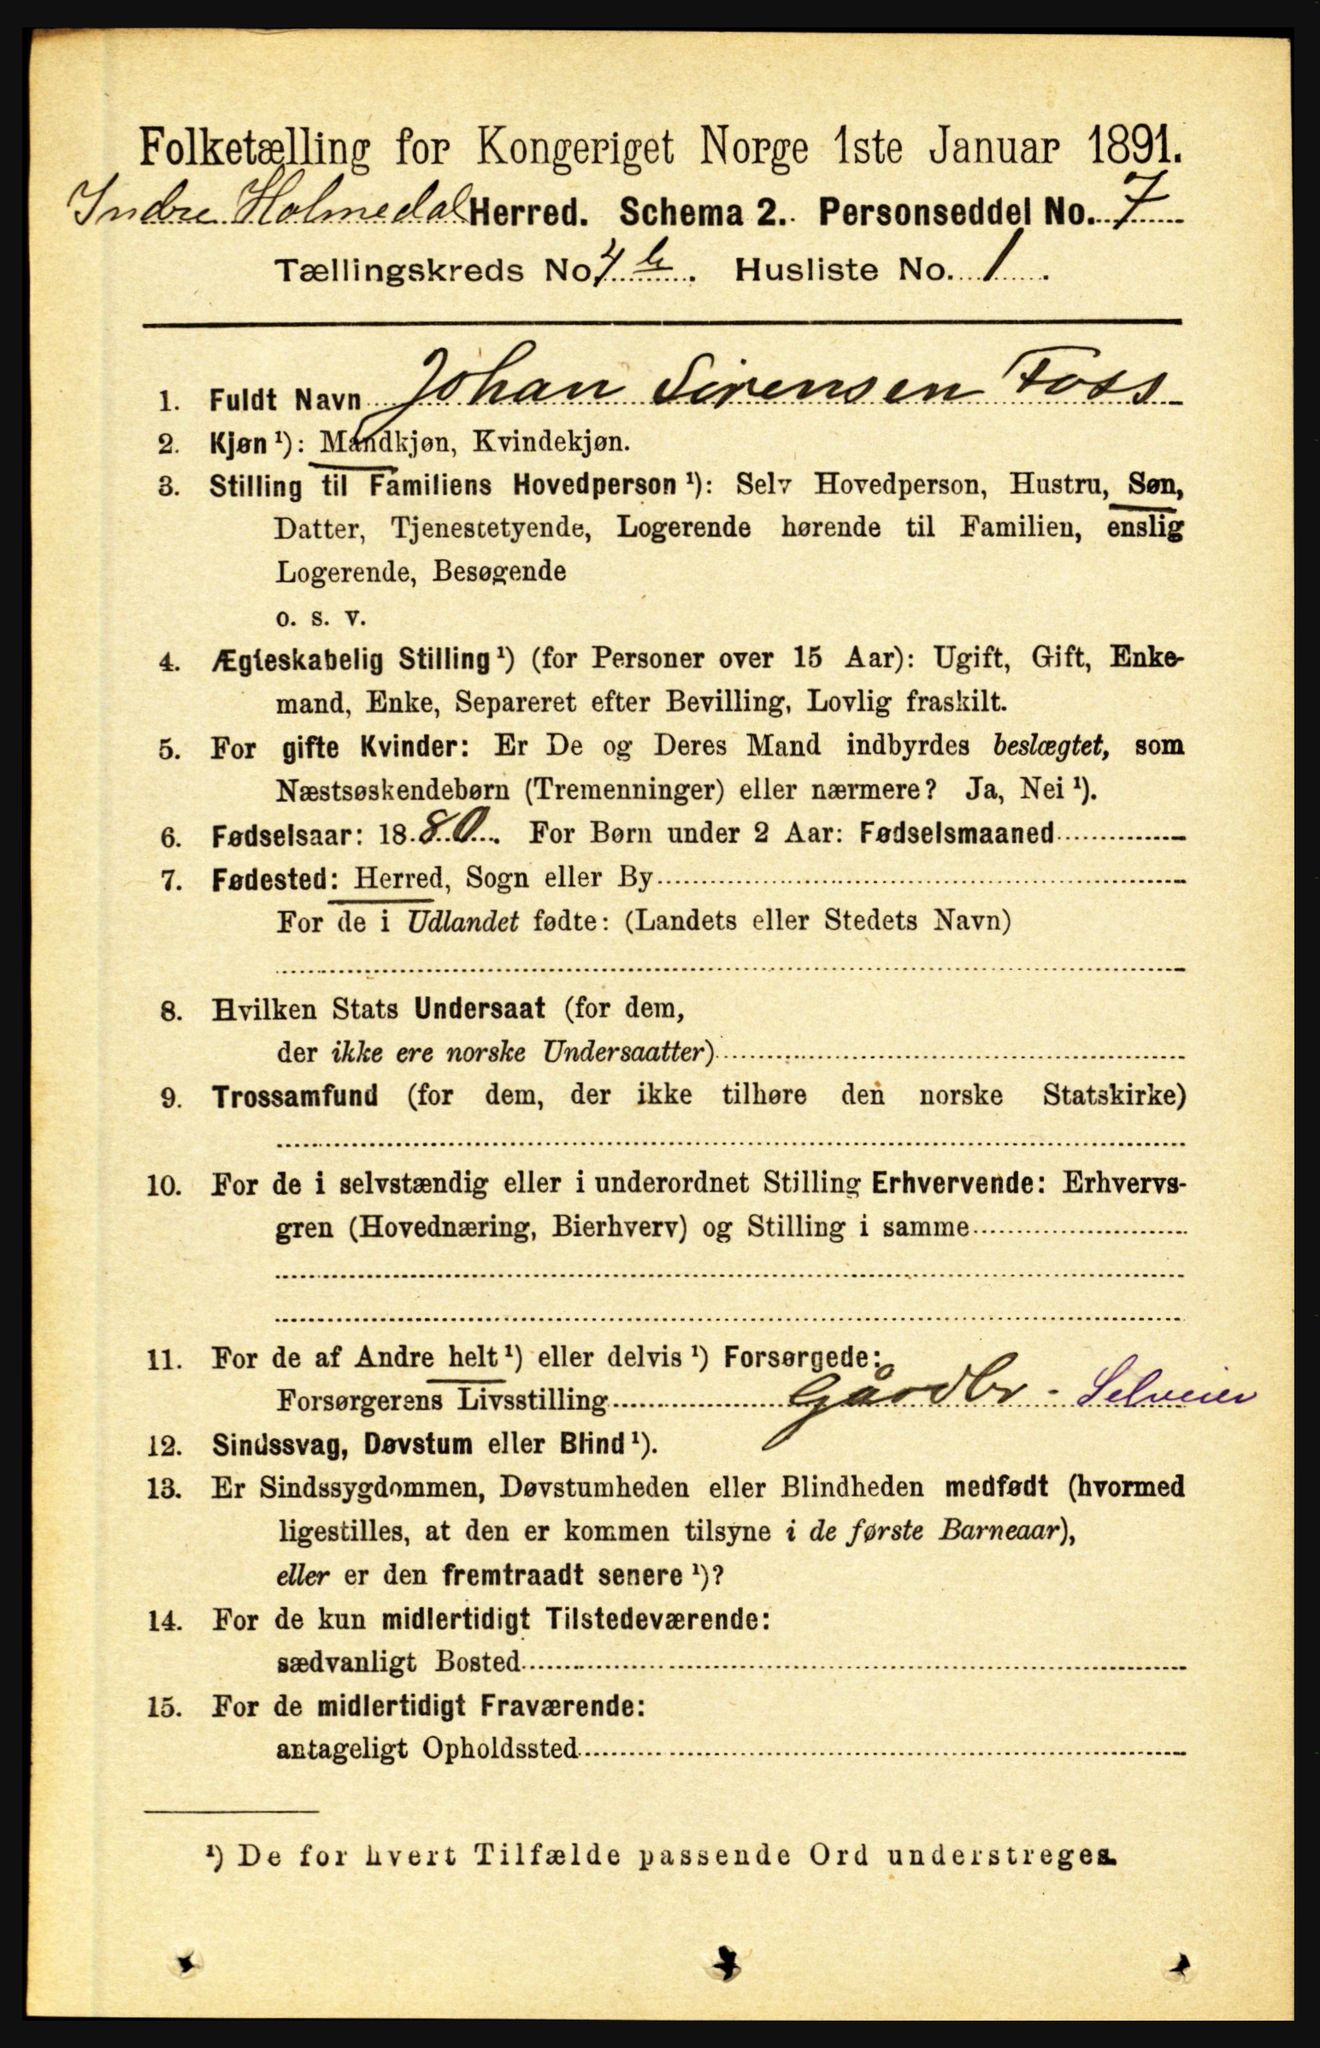 Folketælling for Kongeriget Norge 1ste Januar 1891.
Indre Holmedal Herred. Schema 2. Personseddel No. 7
Tællingskreds No. 4 b. Husliste No. 1.
1. Fuldt Navn Johan Sørensen Foss
2. Kjøn ¹): Mandkjøn, Kvindekjøn.
3. Stilling til Familiens Hovedperson ¹): Selv Hovedperson, Hustru, Søn,
Datter, Tjenestetyende, Logerende hørende til Familien, enslig
Logerende, Besøgende
o. s. v.
4. Ægteskabelig Stilling ¹) (for Personer over 15 Aar): Ugift, Gift, Enke-
mand, Enke, Separeret efter Bevilling, Lovlig fraskilt.
5. For gifte Kvinder: Er De og Deres Mand indbyrdes beslægtet, som
Næstsøskendebørn (Tremenninger) eller nærmere? Ja, Nei ¹).
6. Fødselsaar: 1880. For Børn under 2 Aar: Fødselsmaaned
7. Fødested: Herred, Sogn eller By
For de i Udlandet fødte: (Landets eller Stedets Navn)
8. Hvilken Stats Undersaat (for dem,
der ikke ere norske Undersaatter)
9. Trossamfund (for dem, der ikke tilhøre den norske Statskirke)
10. For de i selvstændig eller i underordnet Stilling Erhvervende: Erhvervs-
gren (Hovednæring, Bierhverv) og Stilling i samme
11. For de af Andre helt ¹) eller delvis ¹) Forsørgede:
Forsørgerens Livsstilling Gårdbr - Selveier
12. Sindssvag, Døvstum eller Blind ¹).
13. Er Sindssygdommen, Døvstumheden eller Blindheden medfødt (hvormed
ligestilles, at den er kommen tilsyne i de første Barneaar),
eller er den fremtraadt senere ¹)?
14. For de kun midlertidigt Tilstedeværende:
sædvanligt Bosted
15. For de midlertidigt Fraværende:
antageligt Opholdssted
¹) De for hvert Tilfælde passende Ord understreges.